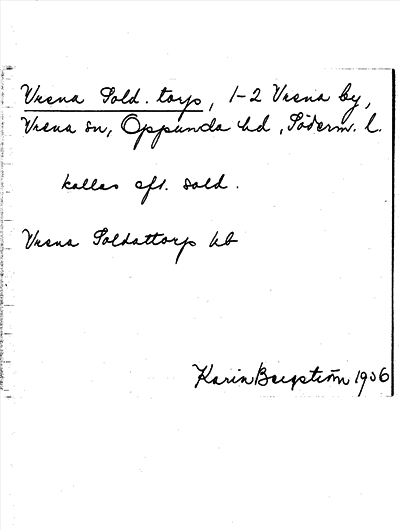 Vrena Sold. torp, 1-2 Vrena by,
Vrena sn, Oppunda hd, Söderm. l.
kallas eft. sold.
Vrena Soldattorp hb
Karin Bergström 1906